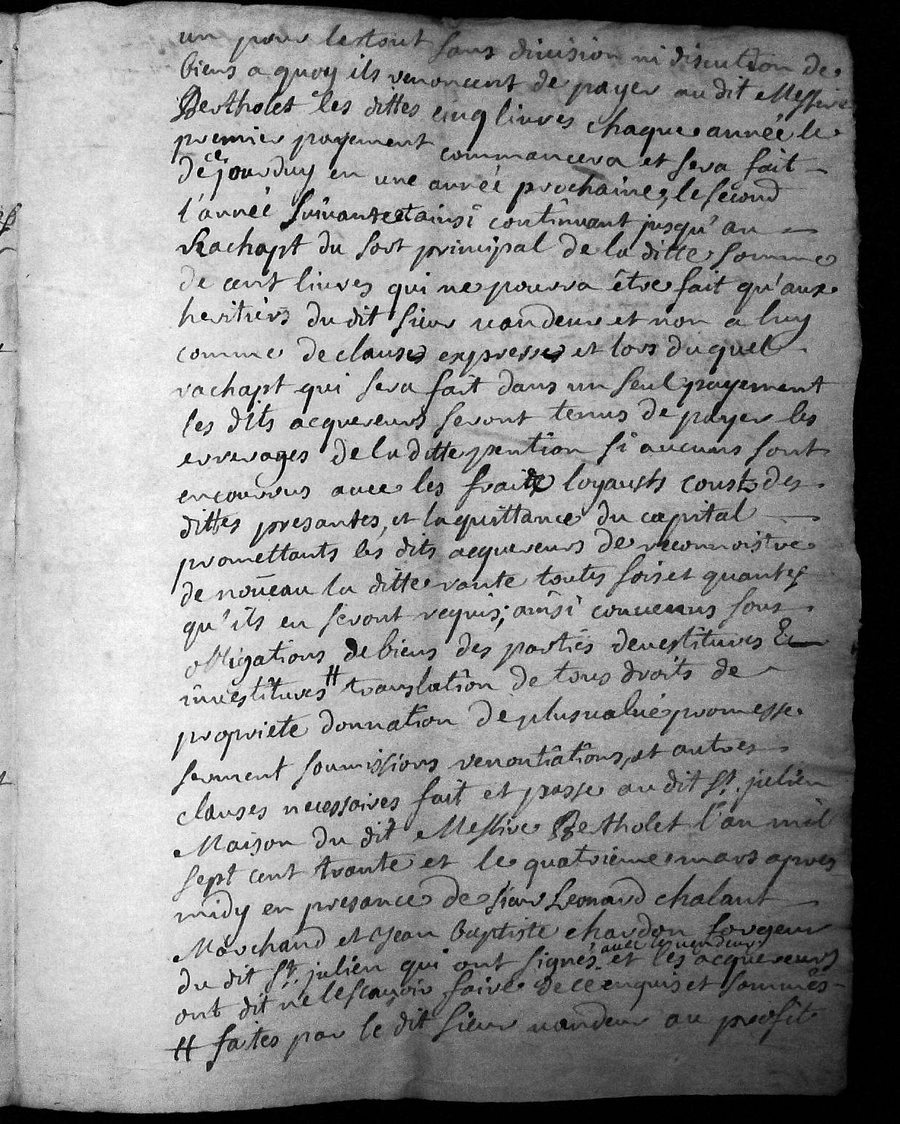 un pour le tout sans division ni discution de
biens a quoy ils renoncent de payer au dit Messire
Bertholet les dittes cinq livres chaque année le
premier payement commancera et sera fait
de ce jourduy en une année prochaine, le second
l'année suivante et ainsi continuant jusqu'au
Rachapt du sort principal de la ditte somme
de cent livres qui ne pourra être fait qu'aux
heritiers du dit sieur vandeur et non a luy
comme de clauses expresses et lors du quel
rachapt qui sera fait dans un seul payement
les dits acquereurs seront tenus de payer les
arrerages de la ditte pention si aucuns sont
encourrus avec les frais loyausts consts des
dittes presantes, et la quittance du capital
promettants les dits acquereurs de reconnoistre
de nouveau la ditte rante toutes fois et quantes
qu'ils en seront requis; ainsi convenus sous
obligations de biens des parties devestitures Et
investitures # translation de tous droits de
propriete donnation de plus value promesse
serment soumissions renontiations, et autres
clauses necessaires fait et passe au dit St. julien
Maison du dit Messire Bertholet l'an mil
sept cent trante et le quatrieme mars apres
midy en presance de sieur Leonard chalant
Marchand et Jean baptiste chardon forgeur
du dit St. julien qui ont signés avec le vandeur et les acquereurs
ont dit ne le sçavoir faire de ce enquis et sommés
# faites par le dit sieur vandeur au profit